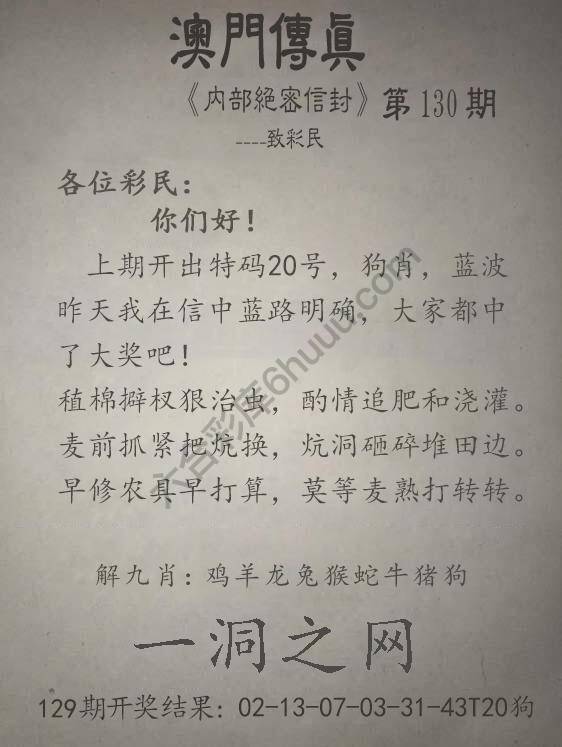 澳門傳眞
《内部絕密信封》第130期
----致彩民
各位彩民：
你们好！
上期开出特码20号，狗肖，蓝波
昨天我在信中蓝路明确，大家都中
了大奖吧！
植棉擗杈狠治虫，酌情追肥和浇灌。
麦前抓紧把炕换，炕洞砸碎堆田边。
早修农具早打算，莫等麦熟打转转。
解九肖：鸡羊龙兔猴蛇牛猪狗
一洞之网
129期开奖结果：02-13-07-03-31-43T20狗
六合彩库6huuu.com